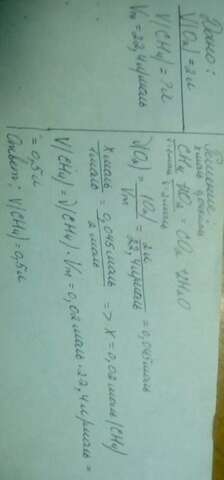 Дано:
V(O₂) = 2л
V(CH₄) = ?л
Vm = 22,4 л/моль
Решение
x моль 0,045моль
CH₄ + 2O₂ = CO₂ + 2H₂O
1 моль 2 моль
ν(O₂) = V(O₂) / Vm = 2л / 22,4 л/моль = 0,045моль
x моль / 1 моль = 0,045 моль / 2 моль => x = 0,02 моль (CH₄)
V(CH₄) = ν(CH₄) · Vm = 0,02 моль · 22,4 л/моль =
= 0,5 л
Ответ: V(CH₄) = 0,5 л